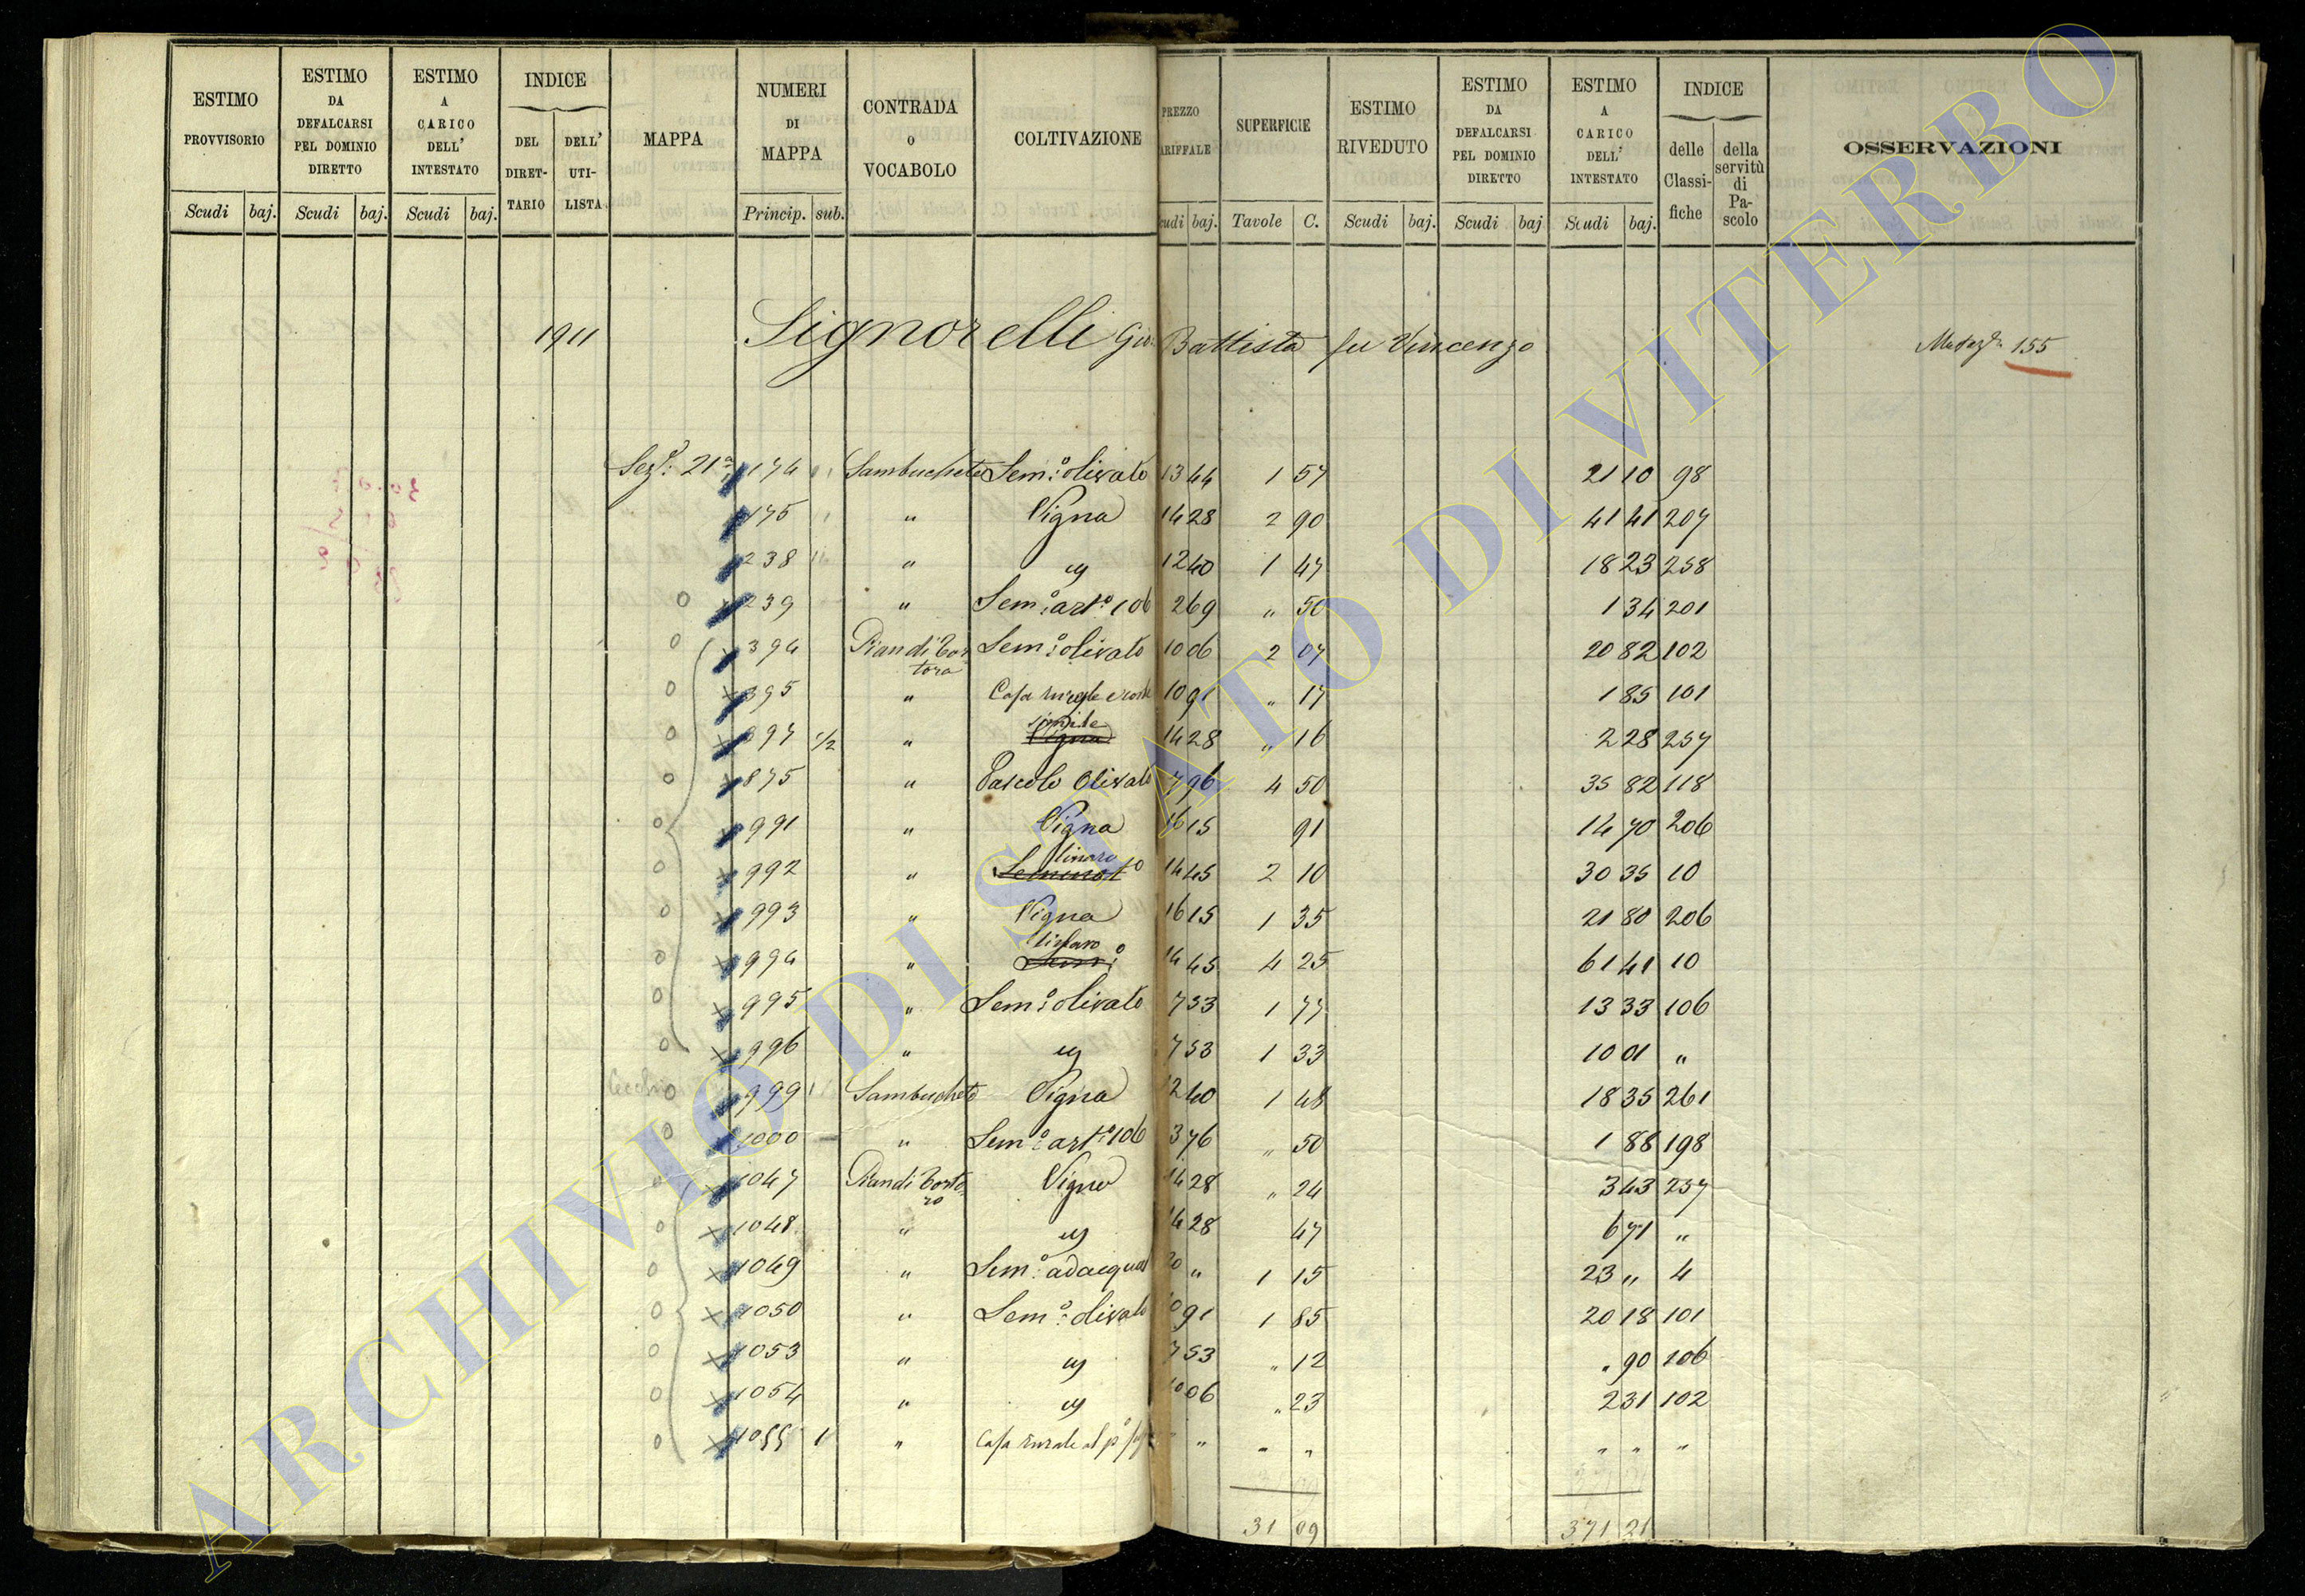 ESTIMO PROVVISORIO
ESTIMO DA DEFALCARSI PEL DOMINIO DIRETTO
ESTIMO A CARICO DELL' INTESTATO
INDICE
DEL DIRET- TARIO
DELL' UTI- LISTA
MAPPA
NUMERI DI MAPPA
CONTRADA o VOCABOLO
COLTIVAZIONE
PREZZO TARIFFALE
SUPERFICIE
ESTIMO RIVEDUTO
ESTIMO DA DEFALCARSI PEL DOMINIO DIRETTO
ESTIMO A CARICO DELL' INTESTATO
INDICE
delle Classi- fiche
della servitù di Pa- scolo
OSSERVAZIONI
Scudi baj. Scudi baj. Scudi baj. Princip. sub. Scudi baj. Tavole C. Scudi baj. Scudi baj Scudi baj.
1911 Signorelli Gio: Battista fu Vincenzo 155
Seze: 21a 174 Sambucheto Sem:o olivato 13 44 1 57 21 10 98
175 " Vigna 14 28 2 90 41 41 207
238 " " 12 40 1 47 18 23 258
0 239 " Sem:o art:o 106 2 69 " 50 1 34 201
0 394 Piandi Tor tora Sem:o olivato 10 06 2 07 20 82 102
0 395 " Casa rurale e corte 10 91 " 17 1 85 101
0 397 1/2 " simile Vigna 14 28 " 16 2 28 257
0 875 " Pascolo Olivato 7 96 4 50 35 82 118
0 991 " Vigna 16 15 91 14 70 206
0 992 " Seminato 14 45 2 10 30 35 10
0 993 " Vigna 16 15 1 35 21 80 206
0 994 " Sem:o 14 45 4 25 61 41 10
0 995 " Sem:o olivato 7 53 1 77 13 33 106
0 996 " " 7 53 1 33 10 01 "
0 999 1 Sambucheto Vigna 12 40 1 48 18 35 261
0 1000 " Sem:o art:o 106 3 76 " 50 1 88 198
0 1047 Vigna 14 28 " 24 3 43 257
0 1048 " " 14 28 47 6 71 "
0 1049 " Sem:o adacquat 20 " 1 15 23 " 4
0 1050 " Sem:o olivato 10 91 1 85 20 18 101
0 1053 " " 7 53 " 12 " 90 106
0 1054 " " 10 06 " 23 2 31 102
0 1055 1 " Casa rurale al po " " " " " " "
31 09 371 21
ARCHIVIO DI STATO DI VITERBO